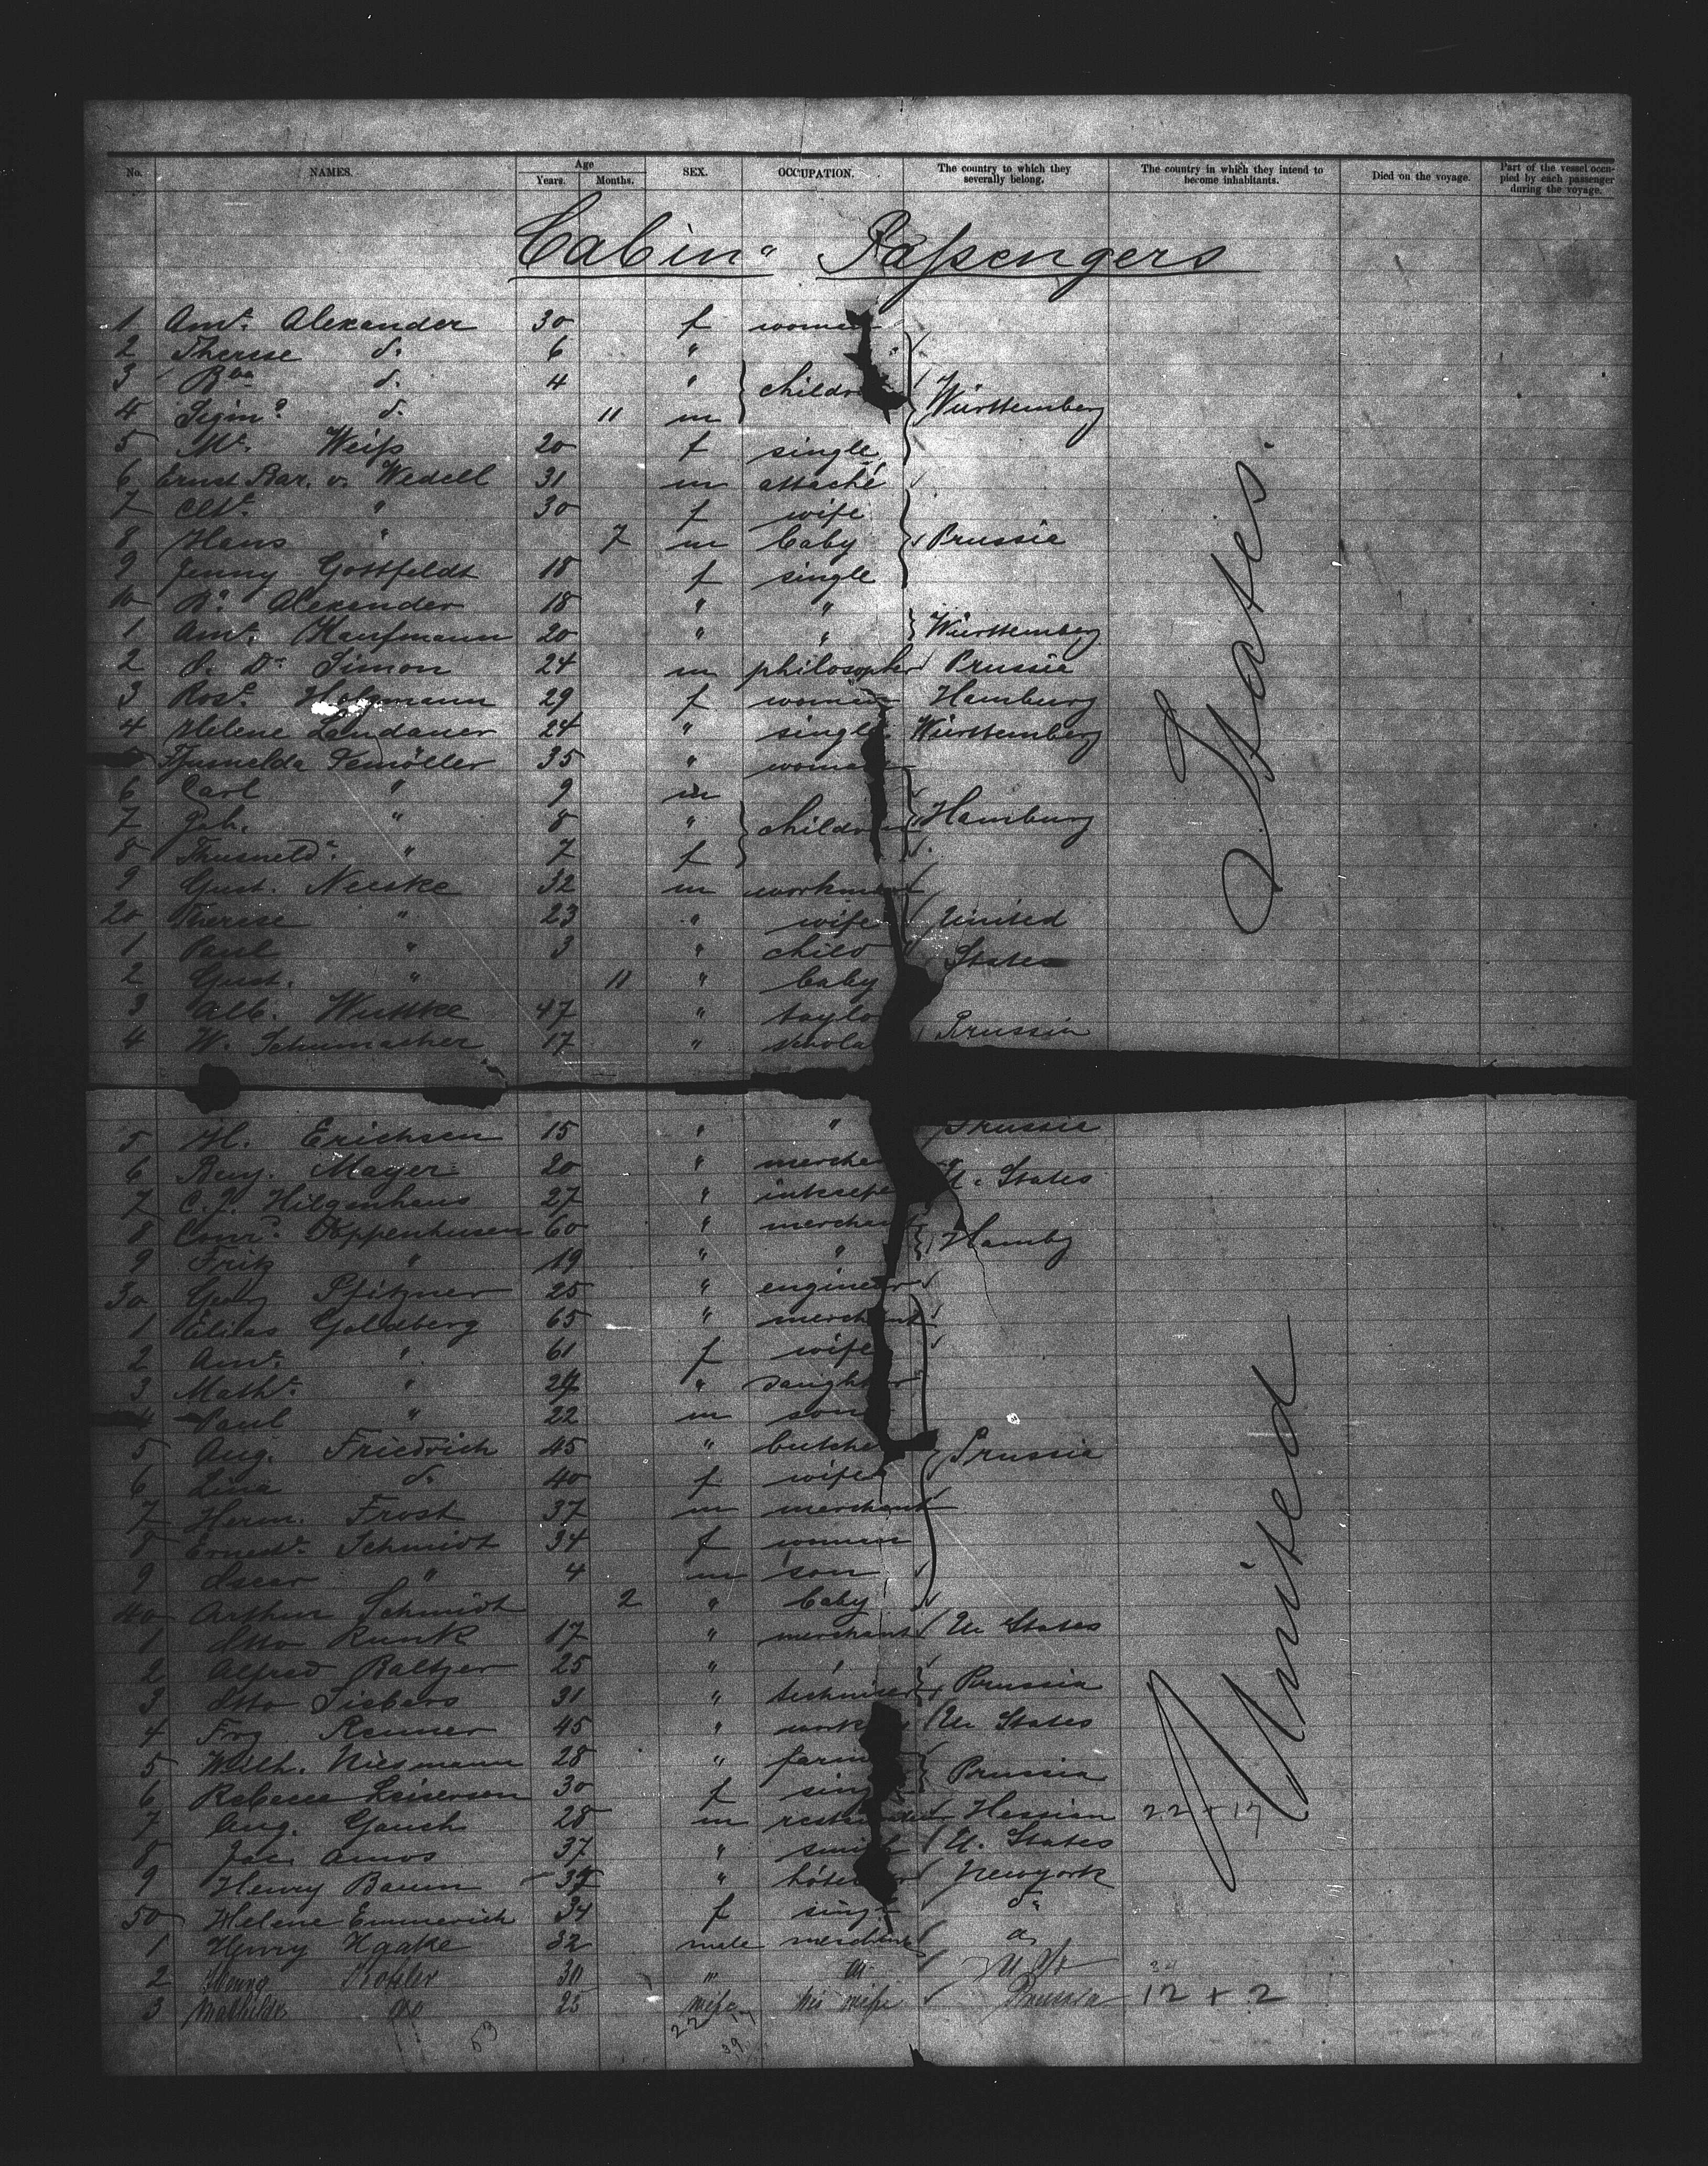 No. NAMES. Age Years. Months. SEX. OCCUPATION. The country to which they severally belong. The country in which they intend to become inhabitants. Died on the voyage. Part of the vessel occupied by each passenger during the voyage.
Cabin Passengers
1 Ame. Alexander 30 f women
2 Therese do. 6 "
3 do. 4 " children Württemberg
4 do. 11 m
5 Weiss 20 f single
6 Ernst Bar. v. Wedell 31 m attaché
7 " 30 f wife
8 Hans " 7 m baby Prussia
9 Jenny Gottfeldt 18 f single
10 Alexander 18 " "
1 Ame. Kaufmann 20 " " Württemberg
2 Dr. Simon 24 m philosopher Prussia
3 Rose. 29 f women Hamburg
4 Helene Landauer 24 " single Württemberg
5 Demöller 35 " women
6 Carl " 9 m
7 Joh. " 8 " children Hamburg
8 Thusneld " 7 f
9 Gust. Neeske 32 m workman
20 Therese " 23 " wife United
1 Paul " 3 " child States
2 Gust. " 11 " baby
3 Alb. Wuttke 47 " taylo
4 W. Schumacher 17 " schola Prussia
States.
5 H. Erichsen 15 " " Prussia
6 Mayer 20 " merchan U. States
7 C. J. Hilgenhaus 27 "
8 Poppenhusen 60 " merchant Hambg
9 Fritz " 19 " "
30 Georg Pfitzner 25 " engineer
1 Elias Goldberg 65 " merchant
2 Ame. " 61 f wife
3 Mathe. " " daughter
4 Paul " 22 m son
5 Aug. Friedrich 45 " butche Prussia
6 Lina do. 40 f wife
7 Herm. Frost 37 m merchant
8 Schmidt 34 f women
9 Oscar " 4 m son
40 Arthur Schmidt 2 " baby
1 Otto Runk 17 " merchant U. States
2 Alfred Baltzer 25 " "
3 Otto Siebers 31 " Prussia
4 Frz Renner 45 " work U. States
5 Wilh. Niesmann 28 " farm
6 Rebecca Leiserson 30 f sing Prussia
7 Aug. Gauch 28 m Hessian 22 + 17
8 Jac. Amos 37 " smith U. States
9 Henry Baum " Newyork
50 Helene Emmerich 34 f singl do.
1 Henry Haake 32 male
2 30 "
3 Mathilde do 25 wife his wife Prussia 12 + 2
53
United